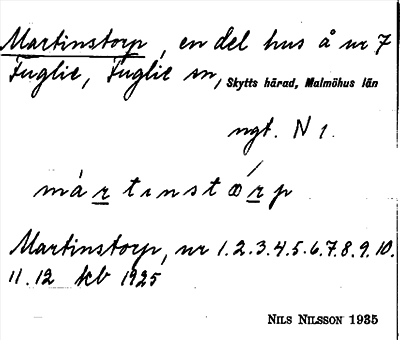 Martinstorp, en del hus å nr 7
Fuglie, Fuglie sn, Skytts härad, Malmöhus län
ngt. N 1.
mártınstœ́rp
Martinstorp, nr 1.2.3.4.5.6.7.8.9.10.
11.12 kb 1925
NILS NILSSON 1935